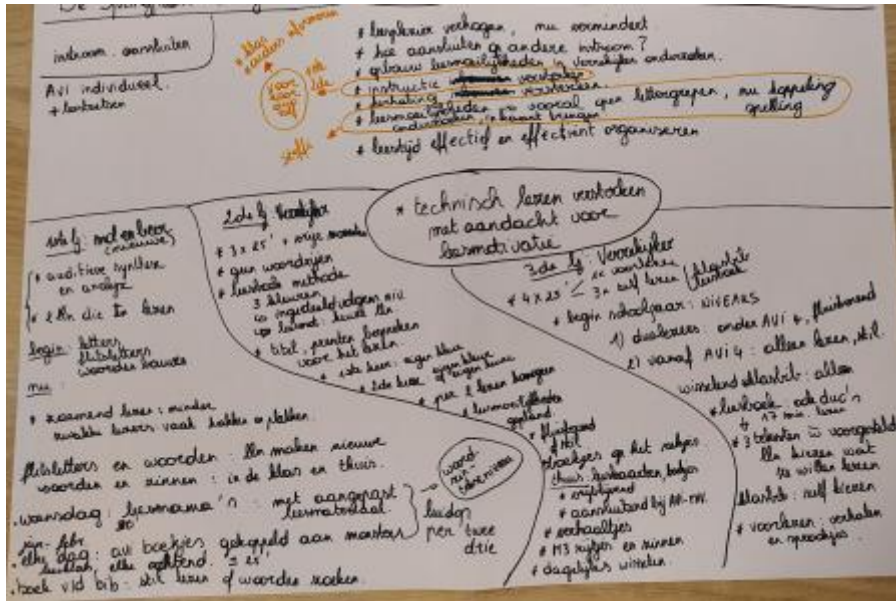 De
instroom aansluiten
AVI individueel
+ klas
+ ouders informeren
* leesplezier verhogen, nu vermindert
* hoe aansluiten op andere instroom?
* opbouw leesmoeilijkheden in verrekijker onderzoeken.
* instructie versterken
* herhaling versterken.
* leesmoeilijkheden vooral open lettergrepen, nu koppeling
onderzoeken, in kaart brengen spelling
* leestijd effectief en efficiënt organiseren
voor
koor
zelf
* technisch lezen versterken
met aandacht voor
leesmotivatie
1ste lj: mol en beer
(nieuwe)
* auditieve synthese
en analyse
* lln die te lezen
begin: letters
flitsletters
woorden bouwen
nu:
* zoemend lezen: minder
zwakke lezers vaak hakken en plakken
flitsletters en woorden: lln maken nieuwe
woorden en zinnen: in de klas en thuis.
• woensdag: leesmama's: met aangepast
leesmateriaal
jan - febr
• elke dag: avi boekjes gekoppeld aan
elke ochtend. ± 25'
• boek v/d bib: stil lezen of woorden zoeken.
leidop
per twee
drie
woord
zin
2de lj Verrekijker
* 3 x 25' + vrije momenten
* geen woordrijen
* leesboek methode
3 kleuren
ingedeeld volgens niv.
* titel, prenten bespreken
voor het lezen.
* 1ste keer: eigen kleur
* 2de keer of eigen keuze
* per 2 lezen
* leesmoeilijkheden
* fluisterend
* stil
boekjes op het rekje
thuis: leeskaarten, boekjes
* vrijblijvend
* aansluitend bij AVI-niv.
* verhaaltjes
* M3 rijtjes en zinnen
* dagelijks wisselen
3de lj: Verrekijker
* 4 x 25' 1x voorlezen
3x zelf lezen klasbib
leesboek
* begin schooljaar: NIVEAUS
1) duolezers: onder AVI 4, fluisterend
2) vanaf AVI 4: alleen lezen, stil.
wisselend klasbib: alleen
* leesboek: ook duo's
17 min. lezen
* 3 teksten voorgesteld
lln kiezen wat
ze willen lezen
klasbib: zelf kiezen
* voorlezen: verhalen
en sprookjes